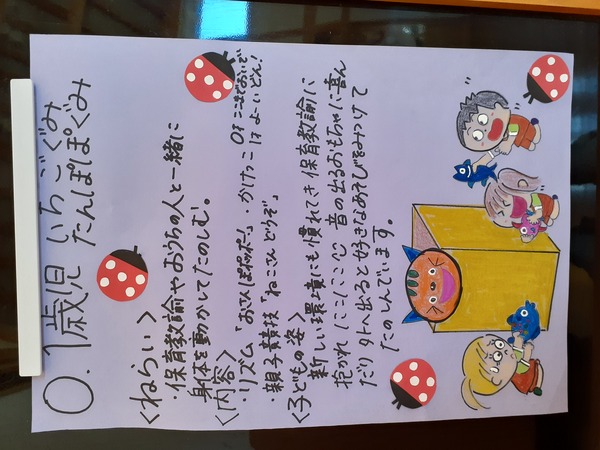 0.1歳児 いちごぐみ
たんぽぽぐみ
<ねらい>
・保育教諭やおうちの人と一緒に
身体を動かしてたのしむ。
<内容>
リズム「おさんぽポッポー」・かけっこ 0才 ここまでおいで
1才 よーいどん!
親子競技「ねこさんどうぞ」
<子どもの姿>
新しい環境にも慣れてき保育教諭に
抱かれ(にこにこ♡) 音の出るおもちゃに喜ん
だり外へ出ると好きなあそびをみつけて
たのしんでいます。